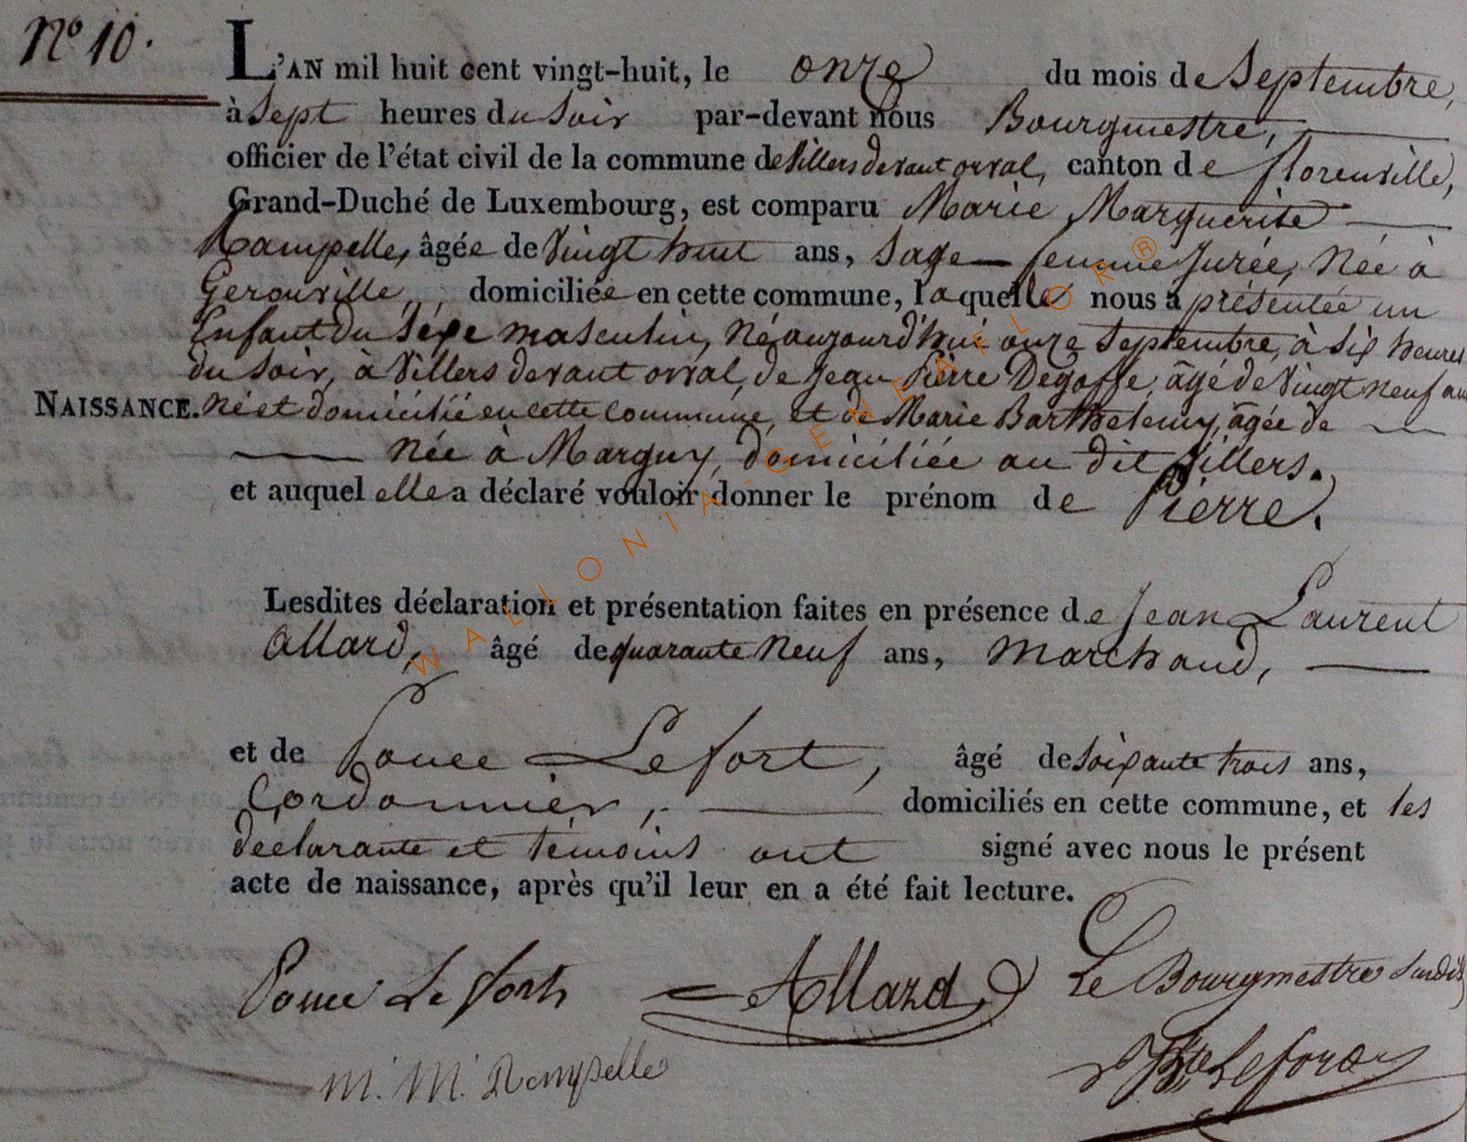 N° 10.
L'AN mil huit cent vingt-huit, le onze du mois de Septembre,
à Sept heures du Soir par-devant nous Bourgmestre,
officier de l'état civil de la commune de Villers devant orval, canton de florenville,
Grand-Duché de Luxembourg, est comparu Marie Marguerite
Rampelle, âgée de Vingt huit ans, Sage-femme Jurée, Née à
Gerouville, domiciliée en cette commune, laquelle nous a présentée un
Enfant du Séxe masculin, Né aujourd'hui onze Septembre, à Six heures
du Soir, à Villers devant orval, de Jean Pierre Degoffe, âgé de Vingt neuf ans
NAISSANCE. Né et domicilié en cette commune, et de Marie Barthelemy, âgée de
née à Marguy, domiciliée au dit Villers.
et auquel elle a déclaré vouloir donner le prénom de Pierre.
Lesdites déclaration et présentation faites en présence de Jean Laurent
Allard, âgé de quarante Neuf ans, Marchand,
et de Ponce Lefort, âgé de Soixante trois ans,
Cordonnier, domiciliés en cette commune, et les
declarante et témoins ont signé avec nous le présent
acte de naissance, après qu'il leur en a été fait lecture.
Ponce Lefort Allard Le Bourgmestre Susdit
M. M. Rampelle
WALLONIA-GENEAFLOR®